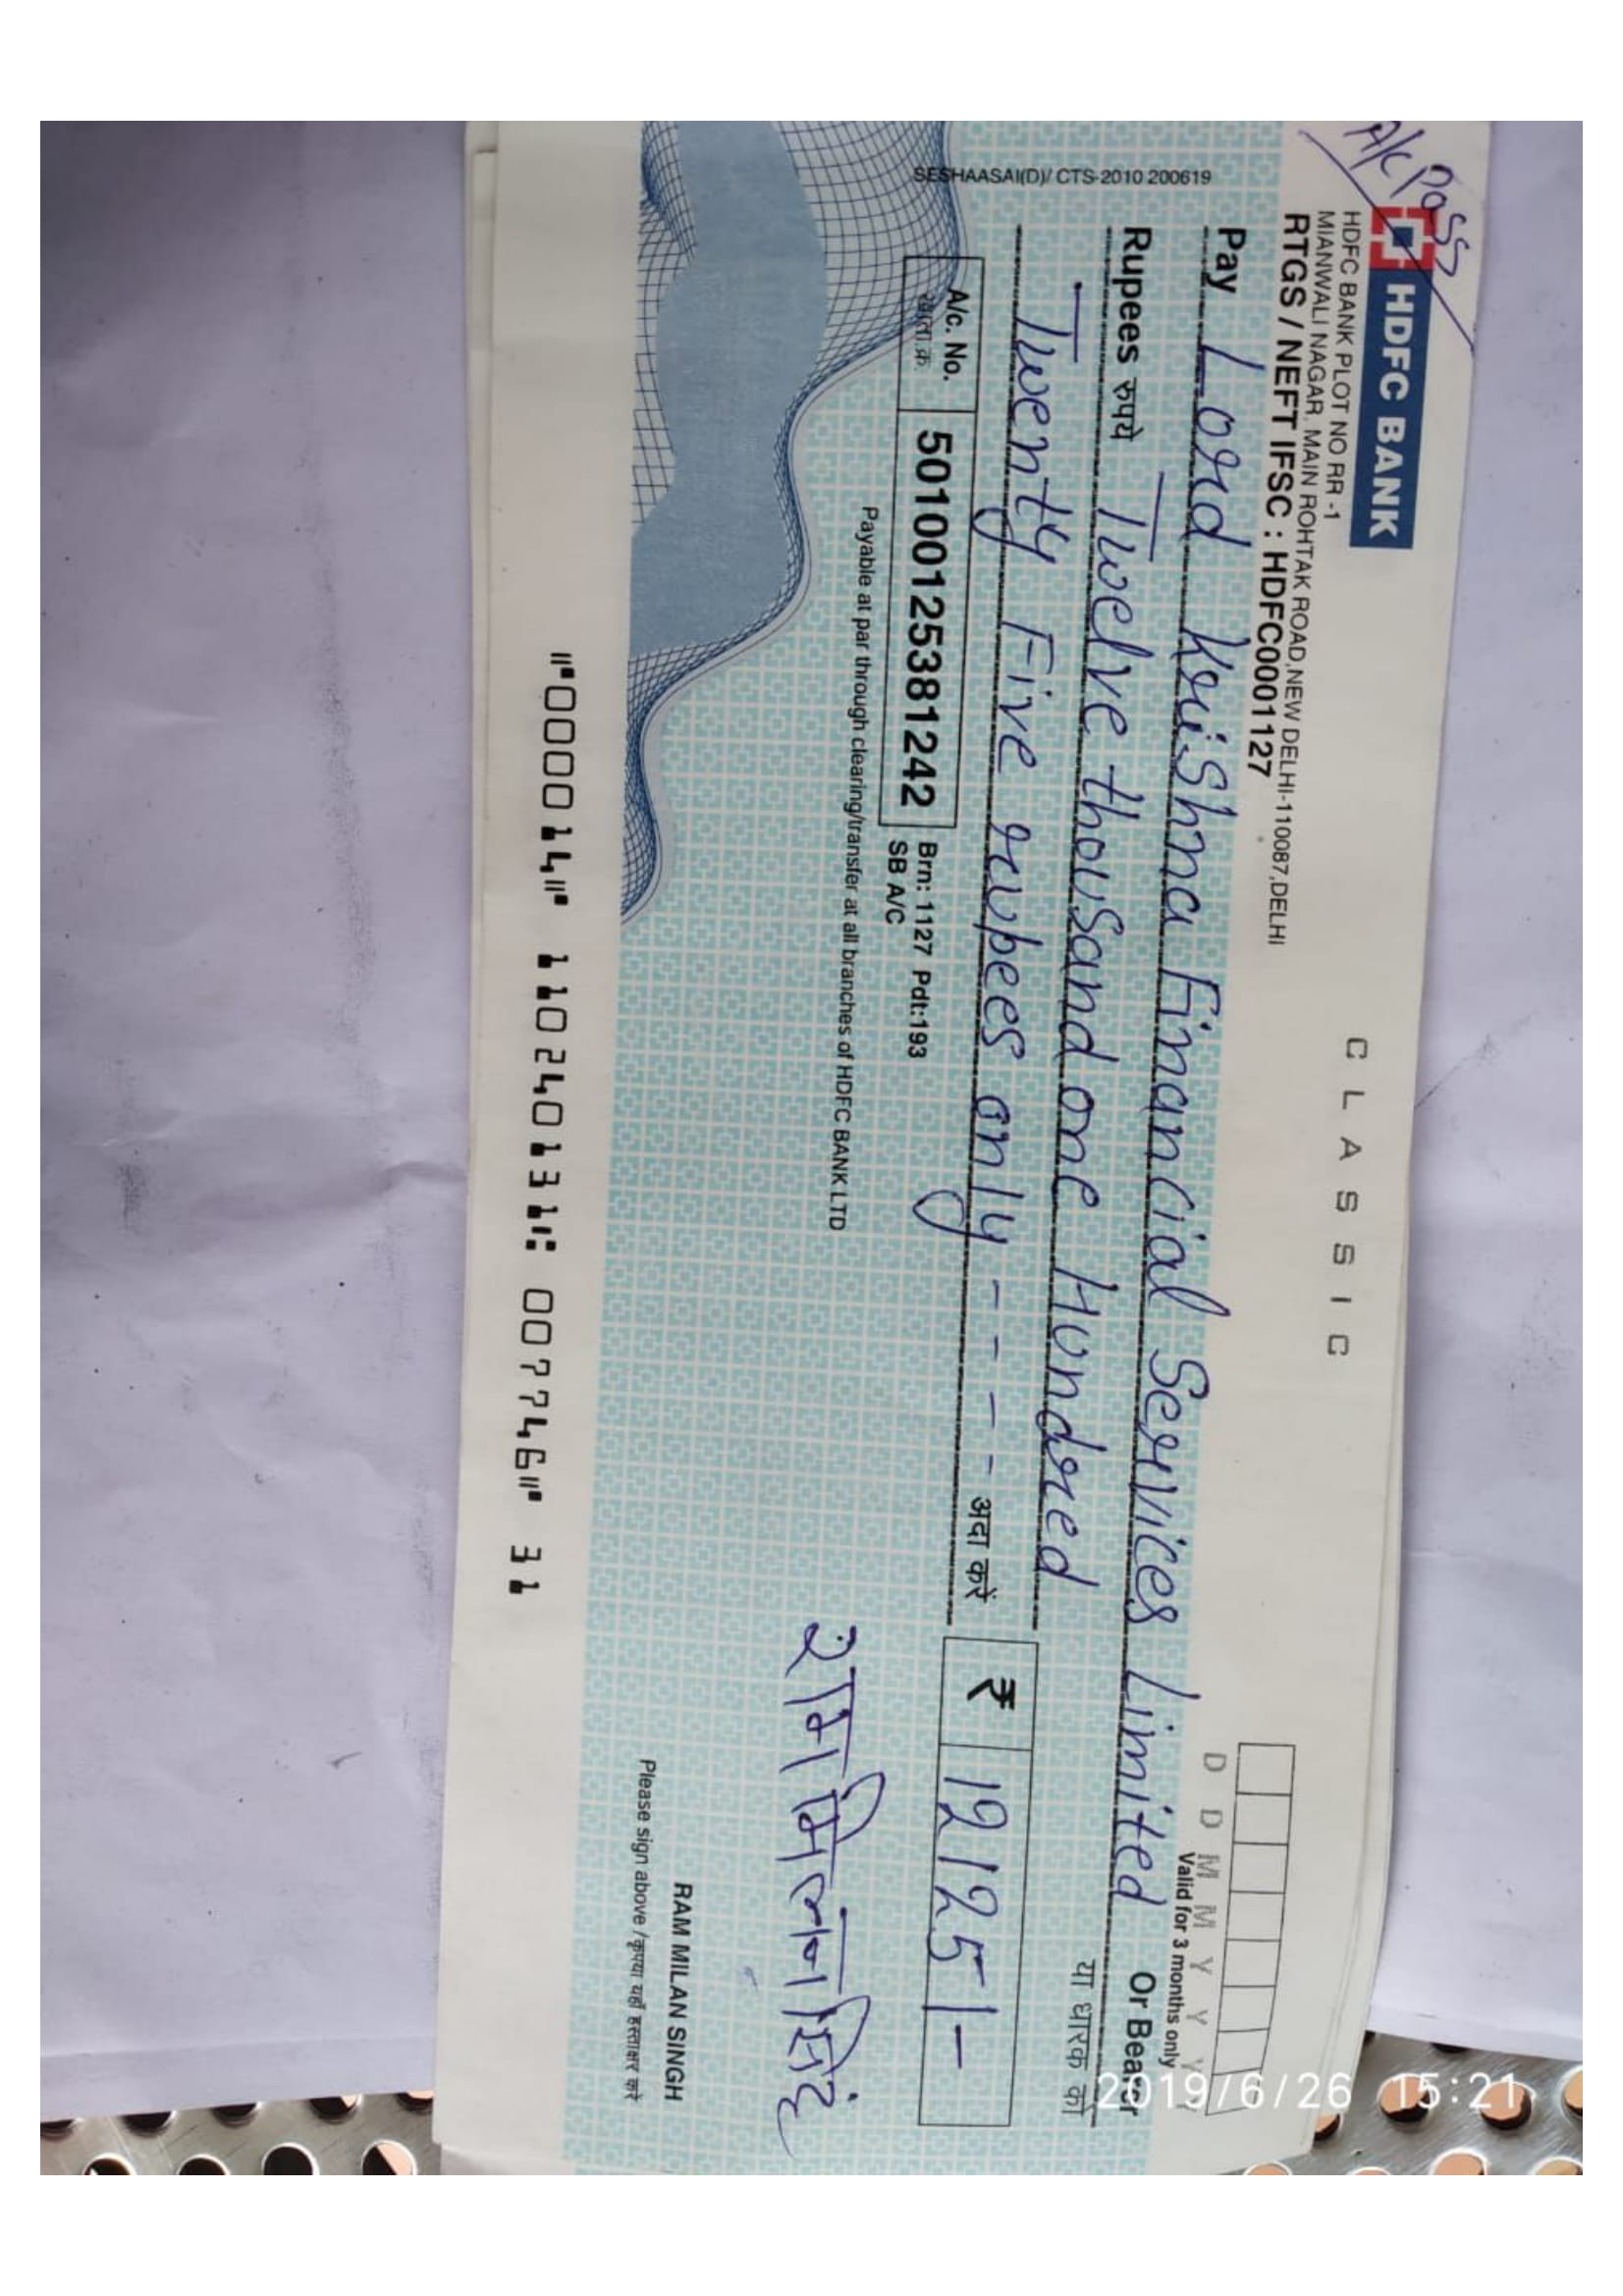 A/C Pass
HDFC BANK
HDFC BANK PLOT NO RR -1
MIANWALI NAGAR, MAIN ROHTAK ROAD,NEW DELHI-110087,DELHI
RTGS / NEFT IFSC : HDFC0001127
CLASSIC
D D M M Y Y Y Y
Valid for 3 months only
Pay Lord Krishna Financial Services Limited Or Bearer
या धारक को
Rupees रुपये Twelve thousand one Hundred
Twenty Five rupees only - - - - अदा करें
₹ 12125/-
A/c. No.
खाता क्र.
50100125381242
Brn: 1127 Pdt:193
SB A/C
Payable at par through clearing/transfer at all branches of HDFC BANK LTD
राम मिलन सिंह
RAM MILAN SINGH
Please sign above /कृपया यहाँ हस्ताक्षर करें
SESHAASAI(D)/ CTS-2010 200619
⑈000014⑈ 110240131⑆ 007746⑈ 31
2019/6/26 15:21